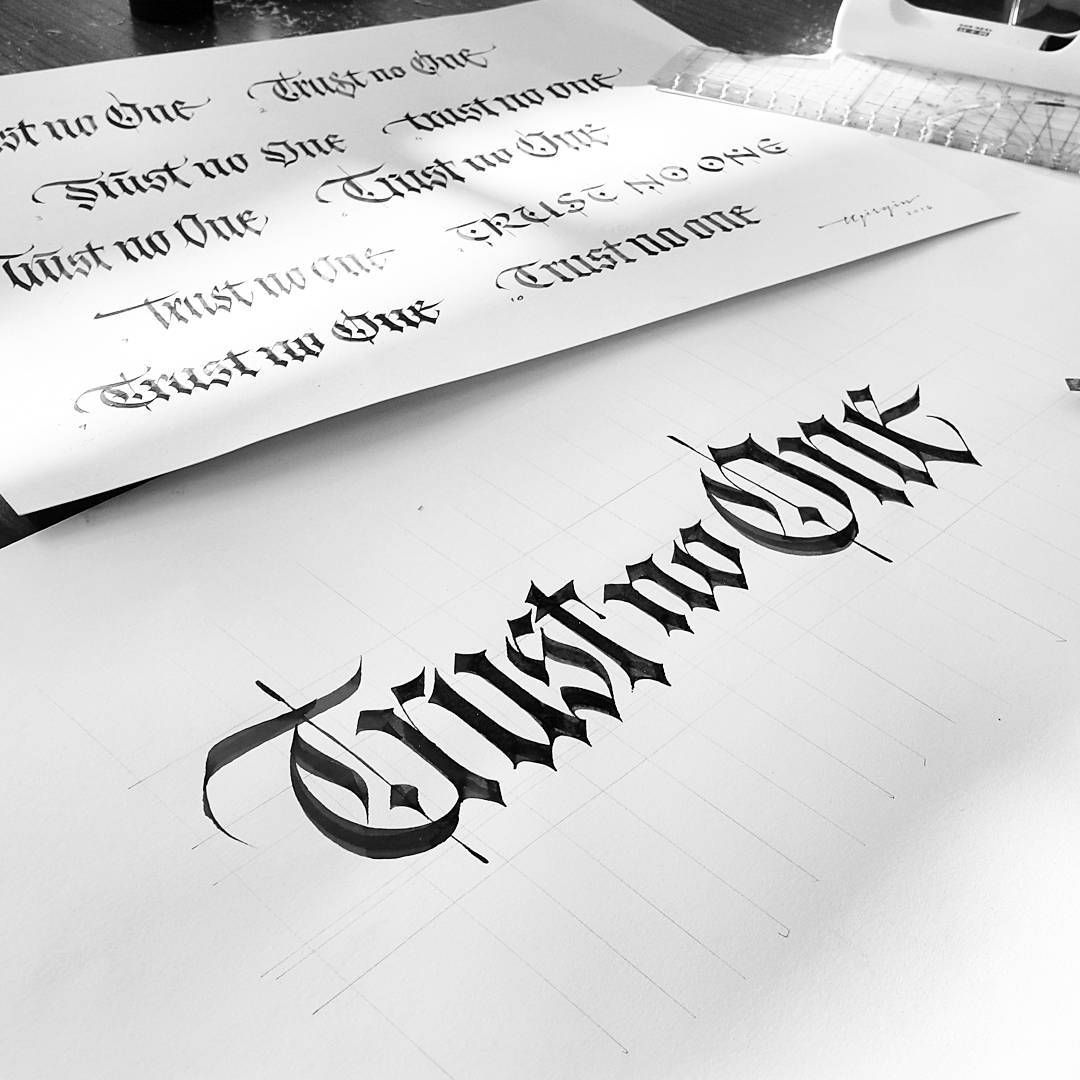 st no One
Trust no One
Trust no One
trust no one
Trust no One
Trust no One
trust no one
TRUST NO ONE
Trust no One
10
Trust no one
2016
Trust no One